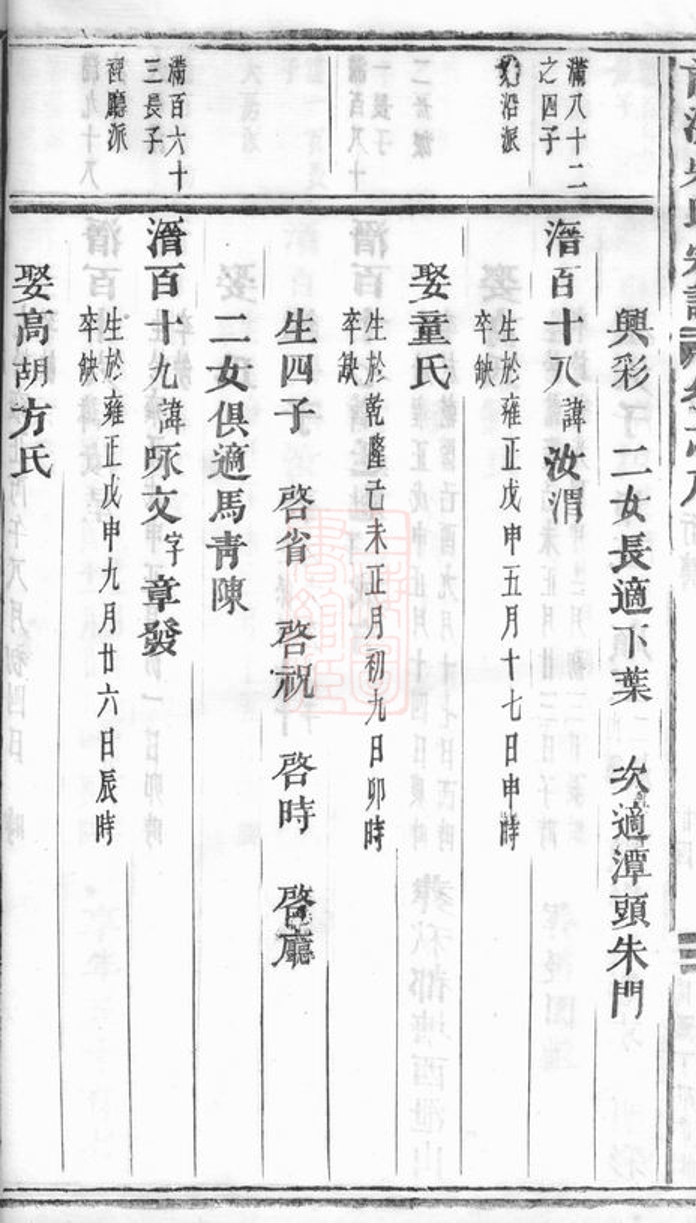 滿八十二
之四子
沿派
滿百六十
三長子
羽廳派
興彩 二女長適下葉 次適潭頭朱門
潛百十八諱汝渭
生於雍正戊申五月十七日申時
卒缺
娶童氏
生於乾隆己未正月初九日卯時
卒缺
生四子 啓省 啓祝 啓時 啓廳
二女俱適馬青陳
潛百十九諱咏文字章發
生於雍正戊申九月廿六日辰時
卒缺
娶高胡方氏